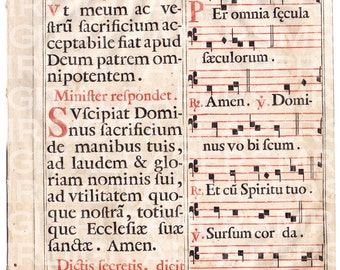 Vt meum ac ve-
ſtrũ sacrificium ac-
ceptabile fiat apud
Deum patrem om-
nipotentem.
Miniſter reſpondet.
SVſcipiat Domi-
nus sacrificium
de manibus tuis,
ad laudem & glo-
riam nominis ſui,
ad vtilitatem quo-
que noſtrã, totiuſ-
que Eccleſiæ ſuæ
ſanctæ. Amen.
Dictis ſecretis, dicit
PEr omnia ſęcula
ſæculorum.
℟. Amen. ℣. Domi-
nus vo bi scum.
Et cũ Spiritu tuo.
℣. Surſum cor da.